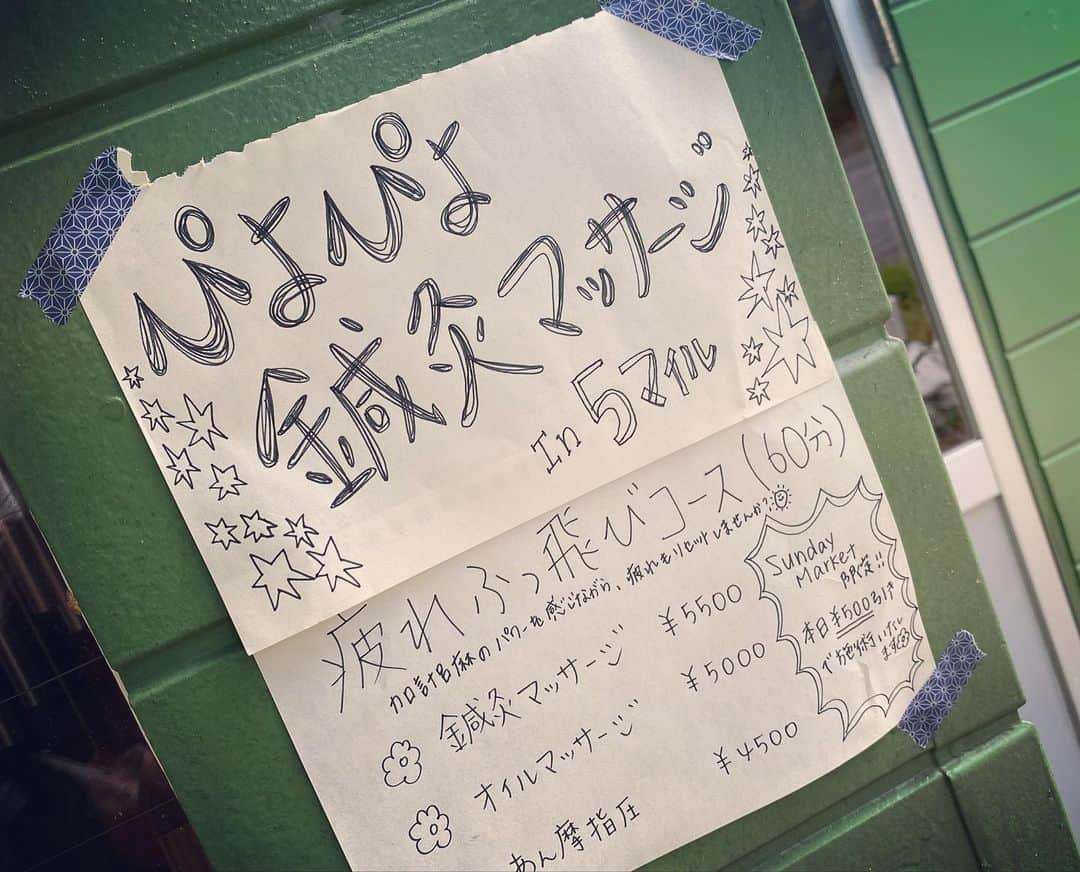 ぴよぴよ
鍼灸マッサージ
In 5マイル
疲れぶっ飛びコース(60分)
加計呂麻のパワーを感じながら、疲れもリセットしませんか?
鍼灸マッサージ ¥5500
オイルマッサージ ¥5000
あん摩指圧 ¥4500
Sunday
Market
限定!!
本日¥500引き
で施術いたし
ます